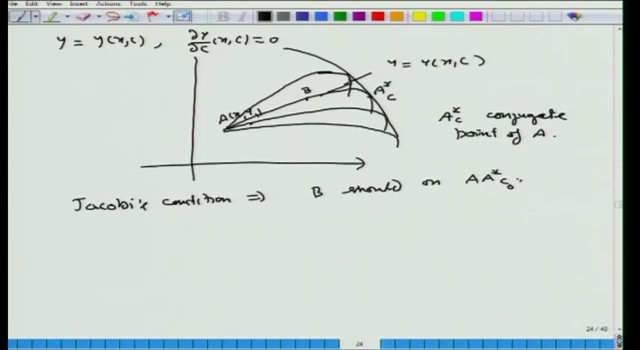 File Edit View Insert Actions Tools Help
y = y(x,c) , ∂y/∂c (x,c) = 0
y = y(x,c)
B
A*c
A(x₁,y₁)
A*c conjugate
point of A.
Jacobi's condition ⇒ B should on AA*c₀.
24 / 40
24